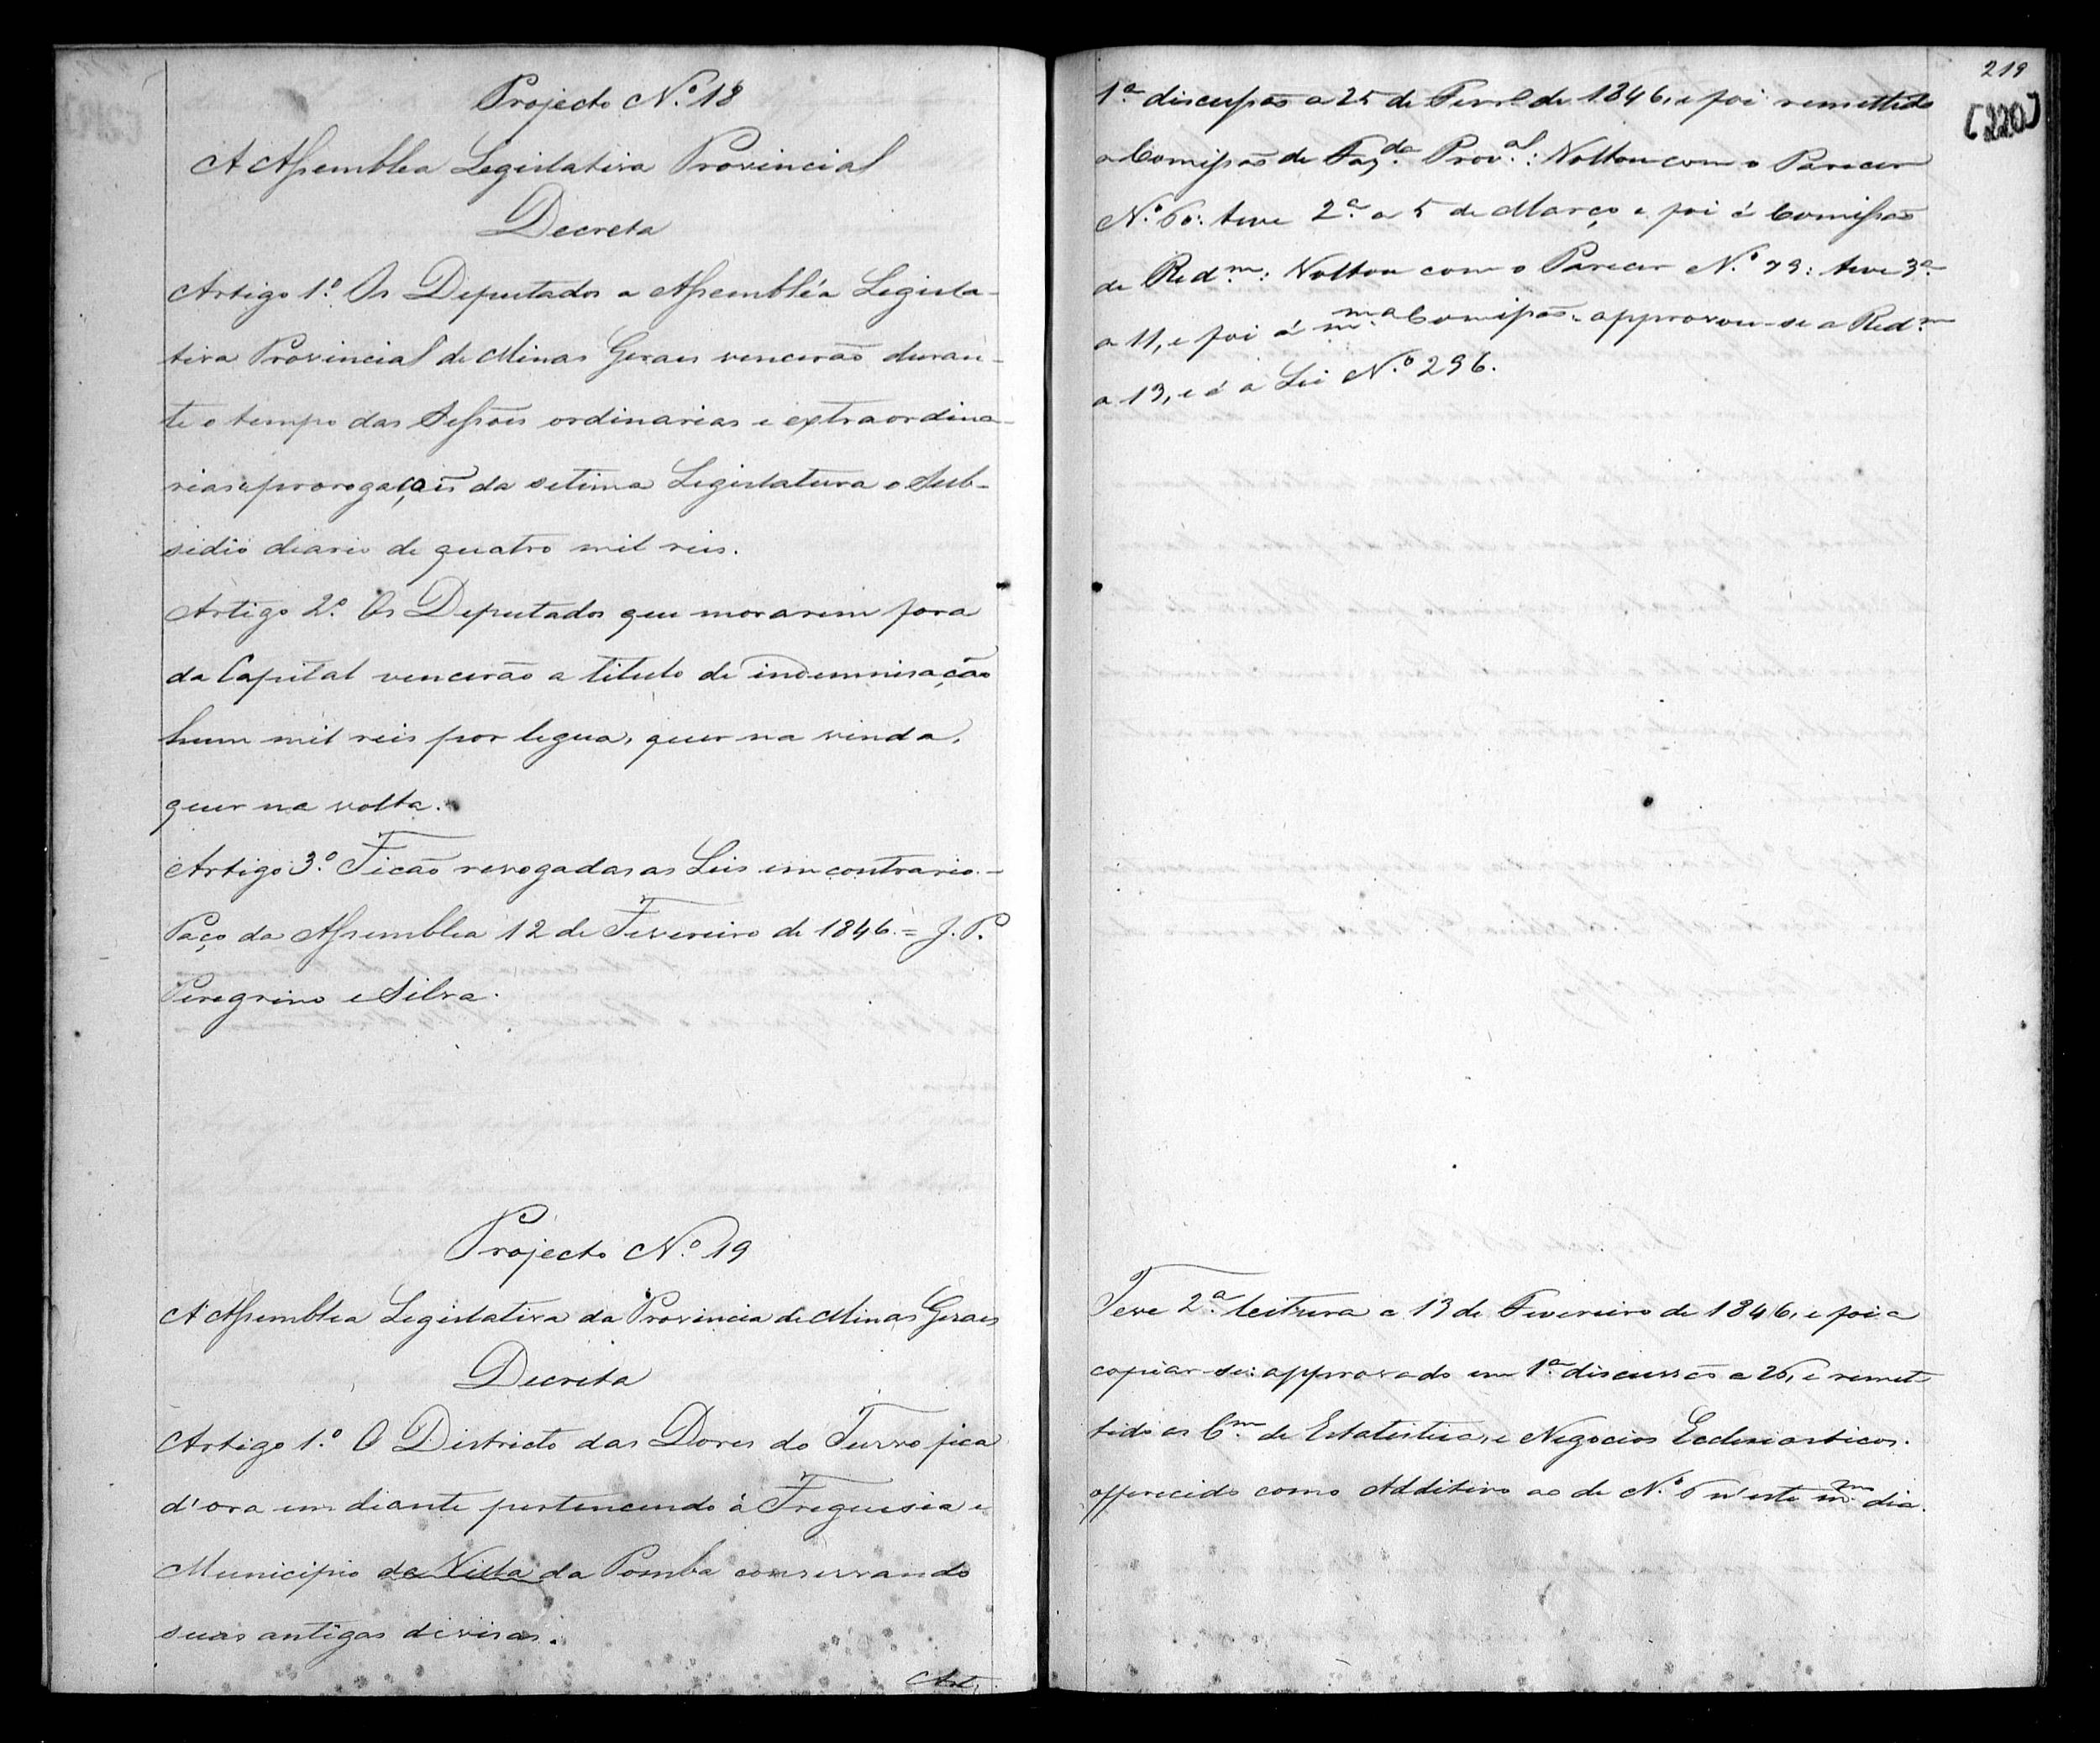 Projecto N.º 18
A Assemblea Legislativa Provincial
Decreta
Artigo 1.º Os Deputados a Assembléa Legisla-
tiva Provincial de Minas Geraes vencerão duran-
te o tempo das Sessões ordinarias e extraordina-
rias e prorogações da setima Legislatura o Sub-
sidio diario de quatro mil reis.
Artigo 2.º Os Deputados que morarem fora
da Capital vencerão a titulo de indemnisação
hum mil reis por legua, quer na vinda,
quer na volta.
Artigo 3.º Ficão revogadas as Leis em contrario. -
Paço da Assemblea 12 de Fevereiro de 1846. = J. P.
Peregrino e Silva.
Projecto N.º 19
A Assemblea Legislativa da Provincia de Minas Geraes
Decreta
Artigo 1.º O Districto das Dores do Turvo fica
d'ora em diante pertencendo á Freguesia e
Municipio da Villa da Pomba conservando
suas antigas divisas.
Art.
219
[220]
1.ª discussão a 25 de Fever.º de 1846, e foi remettido
a Comissão de Faz.da Prov.al: Voltou com o Parecer
N.º 60: teve 2.ª a 5 de Março e foi á Comissão
de Red.m: Voltou com o Parecer N.º 79: teve 3.ª
a 11, e foi á m.ma Comissão. approvou-se a Red.m
a 13, e é a Lei N.º 296.
Teve 2.ª leitura a 13 de Fevereiro de 1846, e foi a
copiar-se: approvado em 1.ª discussão a 26, e remet-
tido as C.m de Estatistica, e Negocios Ecclesiasticos.
offerecido como Additivo ao de N.º 6 n'este m.mo dia.